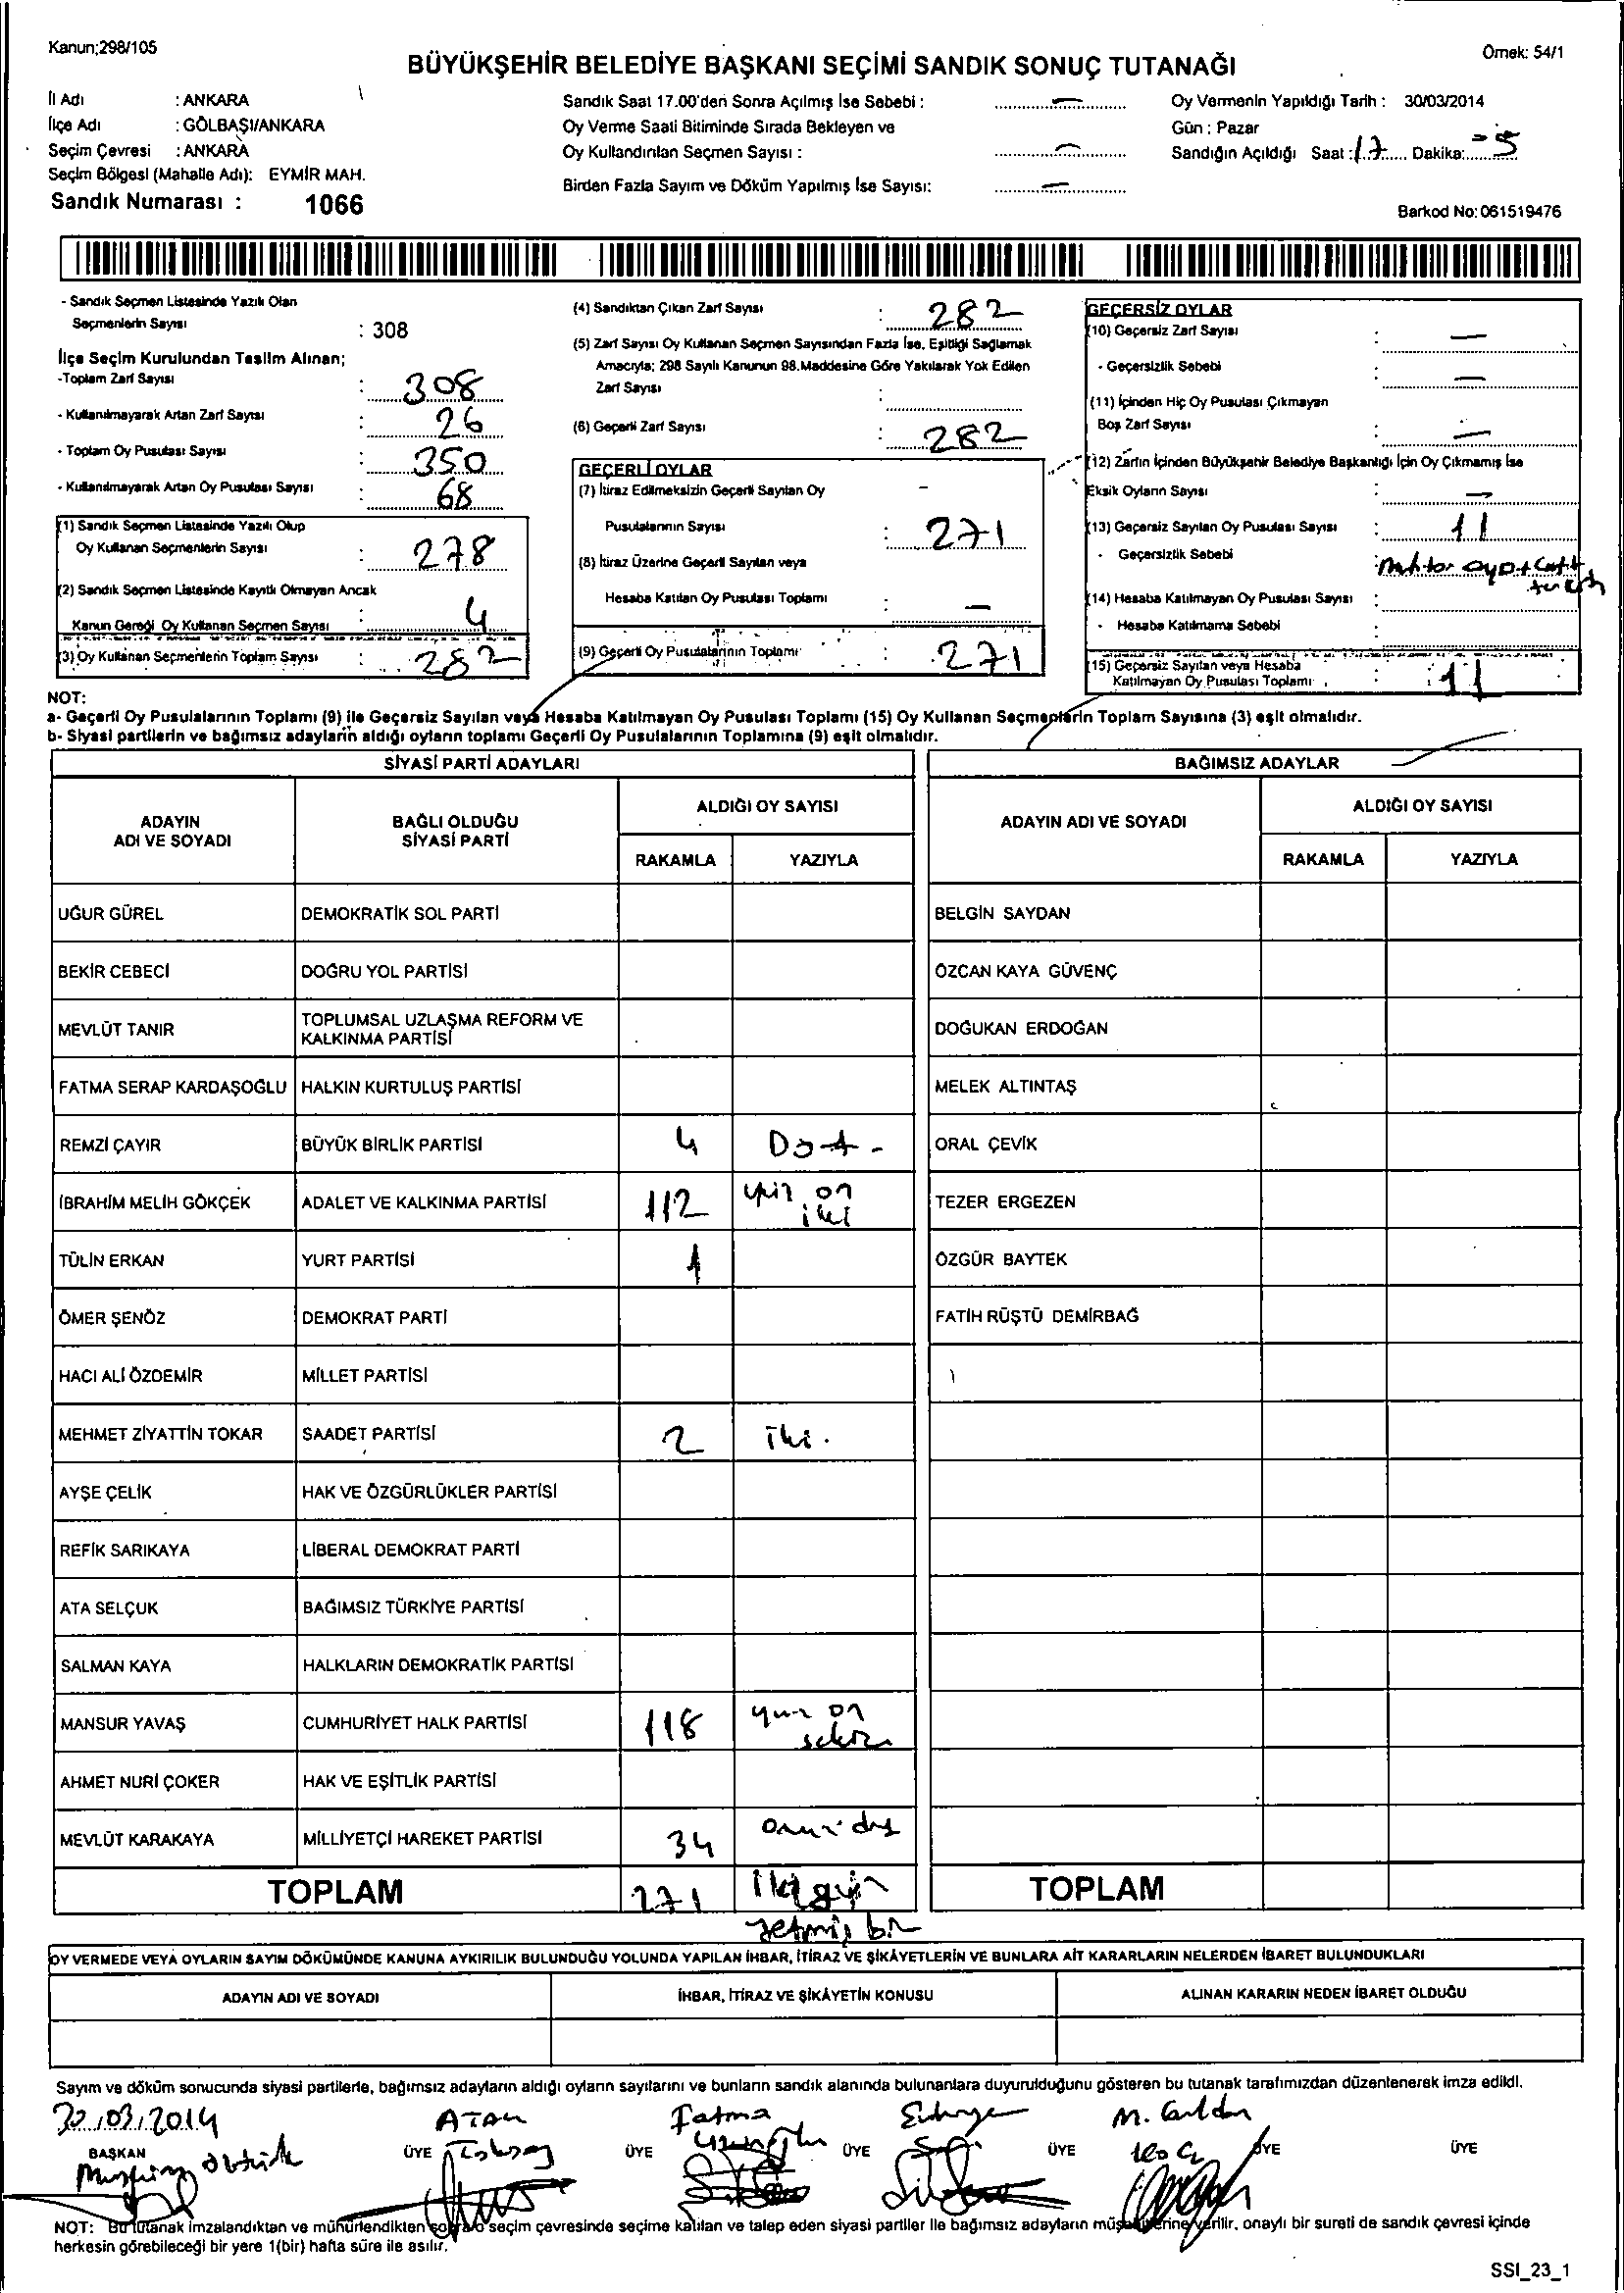 Kanun;298/105
Örnek: 54/1
BÜYÜKŞEHİR BELEDİYE BAŞKANI SEÇİMİ SANDIK SONUÇ TUTANAĞI
İl Adı : ANKARA
İlçe Adı : GÖLBAŞI/ANKARA
Seçim Çevresi : ANKARA
Seçim Bölgesi (Mahalle Adı): EYMİR MAH.
Sandık Numarası : 1066
Sandık Saat 17.00'den Sonra Açılmış İse Sebebi : —
Oy Verme Saati Bitiminde Sırada Bekleyen ve
Oy Kullandırılan Seçmen Sayısı : —
Birden Fazla Sayım ve Döküm Yapılmış İse Sayısı: —
Oy Vermenin Yapıldığı Tarih : 30/03/2014
Gün : Pazar
Sandığın Açıldığı Saat : 17 Dakika: 5
Barkod No: 061519476
- Sandık Seçmen Listesinde Yazılı Olan
Seçmenlerin Sayısı : 308
İlçe Seçim Kurulundan Teslim Alınan;
-Toplam Zarf Sayısı : 308
- Kullanılmayarak Artan Zarf Sayısı : 26
- Toplam Oy Pusulası Sayısı : 350
- Kullanılmayarak Artan Oy Pusulası Sayısı : 68
(1) Sandık Seçmen Listesinde Yazılı Olup
Oy Kullanan Seçmenlerin Sayısı : 278
(2) Sandık Seçmen Listesinde Kayıtlı Olmayan Ancak
Kanun Gereği Oy Kullanan Seçmen Sayısı : 4
(3) Oy Kullanan Seçmenlerin Toplam Sayısı : 282
(4) Sandıktan Çıkan Zarf Sayısı : 282
(5) Zarf Sayısı Oy Kullanan Seçmen Sayısından Fazla İse, Eşitliği Sağlamak
Amacıyla; 298 Sayılı Kanunun 98.Maddesine Göre Yakılarak Yok Edilen
Zarf Sayısı :
(6) Geçerli Zarf Sayısı : 282
GEÇERLİ OYLAR
(7) İtiraz Edilmeksizin Geçerli Sayılan Oy
Pusulalarının Sayısı : 271
(8) İtiraz Üzerine Geçerli Sayılan veya
Hesaba Katılan Oy Pusulası Toplamı : —
(9) Geçerli Oy Pusulalarının Toplamı : 271
GEÇERSİZ OYLAR
(10) Geçersiz Zarf Sayısı : —
- Geçersizlik Sebebi : —
(11) İçinden Hiç Oy Pusulası Çıkmayan
Boş Zarf Sayısı : —
(12) Zarfın İçinden Büyükşehir Belediye Başkanlığı İçin Oy Çıkmamış İse
Eksik Oyların Sayısı : —
(13) Geçersiz Sayılan Oy Pusulası Sayısı : 11
- Geçersizlik Sebebi :
(14) Hesaba Katılmayan Oy Pusulası Sayısı :
- Hesaba Katılmama Sebebi :
(15) Geçersiz Sayılan veya Hesaba
Katılmayan Oy Pusulası Toplamı : 11
NOT:
a- Geçerli Oy Pusulalarının Toplamı (9) ile Geçersiz Sayılan veya Hesaba Katılmayan Oy Pusulası Toplamı (15) Oy Kullanan Seçmenlerin Toplam Sayısına (3) eşit olmalıdır.
b- Siyasi partilerin ve bağımsız adayların aldığı oyların toplamı Geçerli Oy Pusulalarının Toplamına (9) eşit olmalıdır.
SİYASİ PARTİ ADAYLARI
ADAYIN ADI VE SOYADI
BAĞLI OLDUĞU SİYASİ PARTİ
ALDIĞI OY SAYISI
RAKAMLA YAZIYLA
UĞUR GÜREL DEMOKRATİK SOL PARTİ
BEKİR CEBECİ DOĞRU YOL PARTİSİ
MEVLÜT TANIR TOPLUMSAL UZLAŞMA REFORM VE
KALKINMA PARTİSİ
FATMA SERAP KARDAŞOĞLU HALKIN KURTULUŞ PARTİSİ
REMZİ ÇAYIR BÜYÜK BİRLİK PARTİSİ 4 Dört -
İBRAHİM MELİH GÖKÇEK ADALET VE KALKINMA PARTİSİ 112 yüz on
iki
TÜLİN ERKAN YURT PARTİSİ 1
ÖMER ŞENÖZ DEMOKRAT PARTİ
HACI ALİ ÖZDEMİR MİLLET PARTİSİ
MEHMET ZİYATTİN TOKAR SAADET PARTİSİ 2 iki.
AYŞE ÇELİK HAK VE ÖZGÜRLÜKLER PARTİSİ
REFİK SARIKAYA LİBERAL DEMOKRAT PARTİ
ATA SELÇUK BAĞIMSIZ TÜRKİYE PARTİSİ
SALMAN KAYA HALKLARIN DEMOKRATİK PARTİSİ
MANSUR YAVAŞ CUMHURİYET HALK PARTİSİ 118 yüz on
sekiz
AHMET NURİ ÇOKER HAK VE EŞİTLİK PARTİSİ
MEVLÜT KARAKAYA MİLLİYETÇİ HAREKET PARTİSİ 34
TOPLAM 271 iki yüz
yetmiş bir
BAĞIMSIZ ADAYLAR
ADAYIN ADI VE SOYADI
ALDIĞI OY SAYISI
RAKAMLA YAZIYLA
BELGİN SAYDAN
ÖZCAN KAYA GÜVENÇ
DOĞUKAN ERDOĞAN
MELEK ALTINTAŞ
ORAL ÇEVİK
TEZER ERGEZEN
ÖZGÜR BAYTEK
FATİH RÜŞTÜ DEMİRBAĞ
TOPLAM
OY VERMEDE VEYA OYLARIN SAYIM DÖKÜMÜNDE KANUNA AYKIRILIK BULUNDUĞU YOLUNDA YAPILAN İHBAR, İTİRAZ VE ŞİKÂYETLERİN VE BUNLARA AİT KARARLARIN NELERDEN İBARET BULUNDUKLARI
ADAYIN ADI VE SOYADI
İHBAR, İTİRAZ VE ŞİKÂYETİN KONUSU
ALINAN KARARIN NEDEN İBARET OLDUĞU
Sayım ve döküm sonucunda siyasi partilerle, bağımsız adayların aldığı oyların sayılarını ve bunların sandık alanında bulunanlara duyurulduğunu gösteren bu tutanak tarafımızdan düzenlenerek imza edildi.
30.03.2014
Fatma
BAŞKAN ÜYE ÜYE ÜYE ÜYE ÜYE ÜYE
NOT: Bu tutanak imzalandıktan ve mühürlendikten sonra o seçim çevresinde seçime katılan ve talep eden siyasi partiler ile bağımsız adayların müşahitlerine verilir, onaylı bir sureti de sandık çevresi içinde
herkesin görebileceği bir yere 1(bir) hafta süre ile asılır.
SSI_23_1